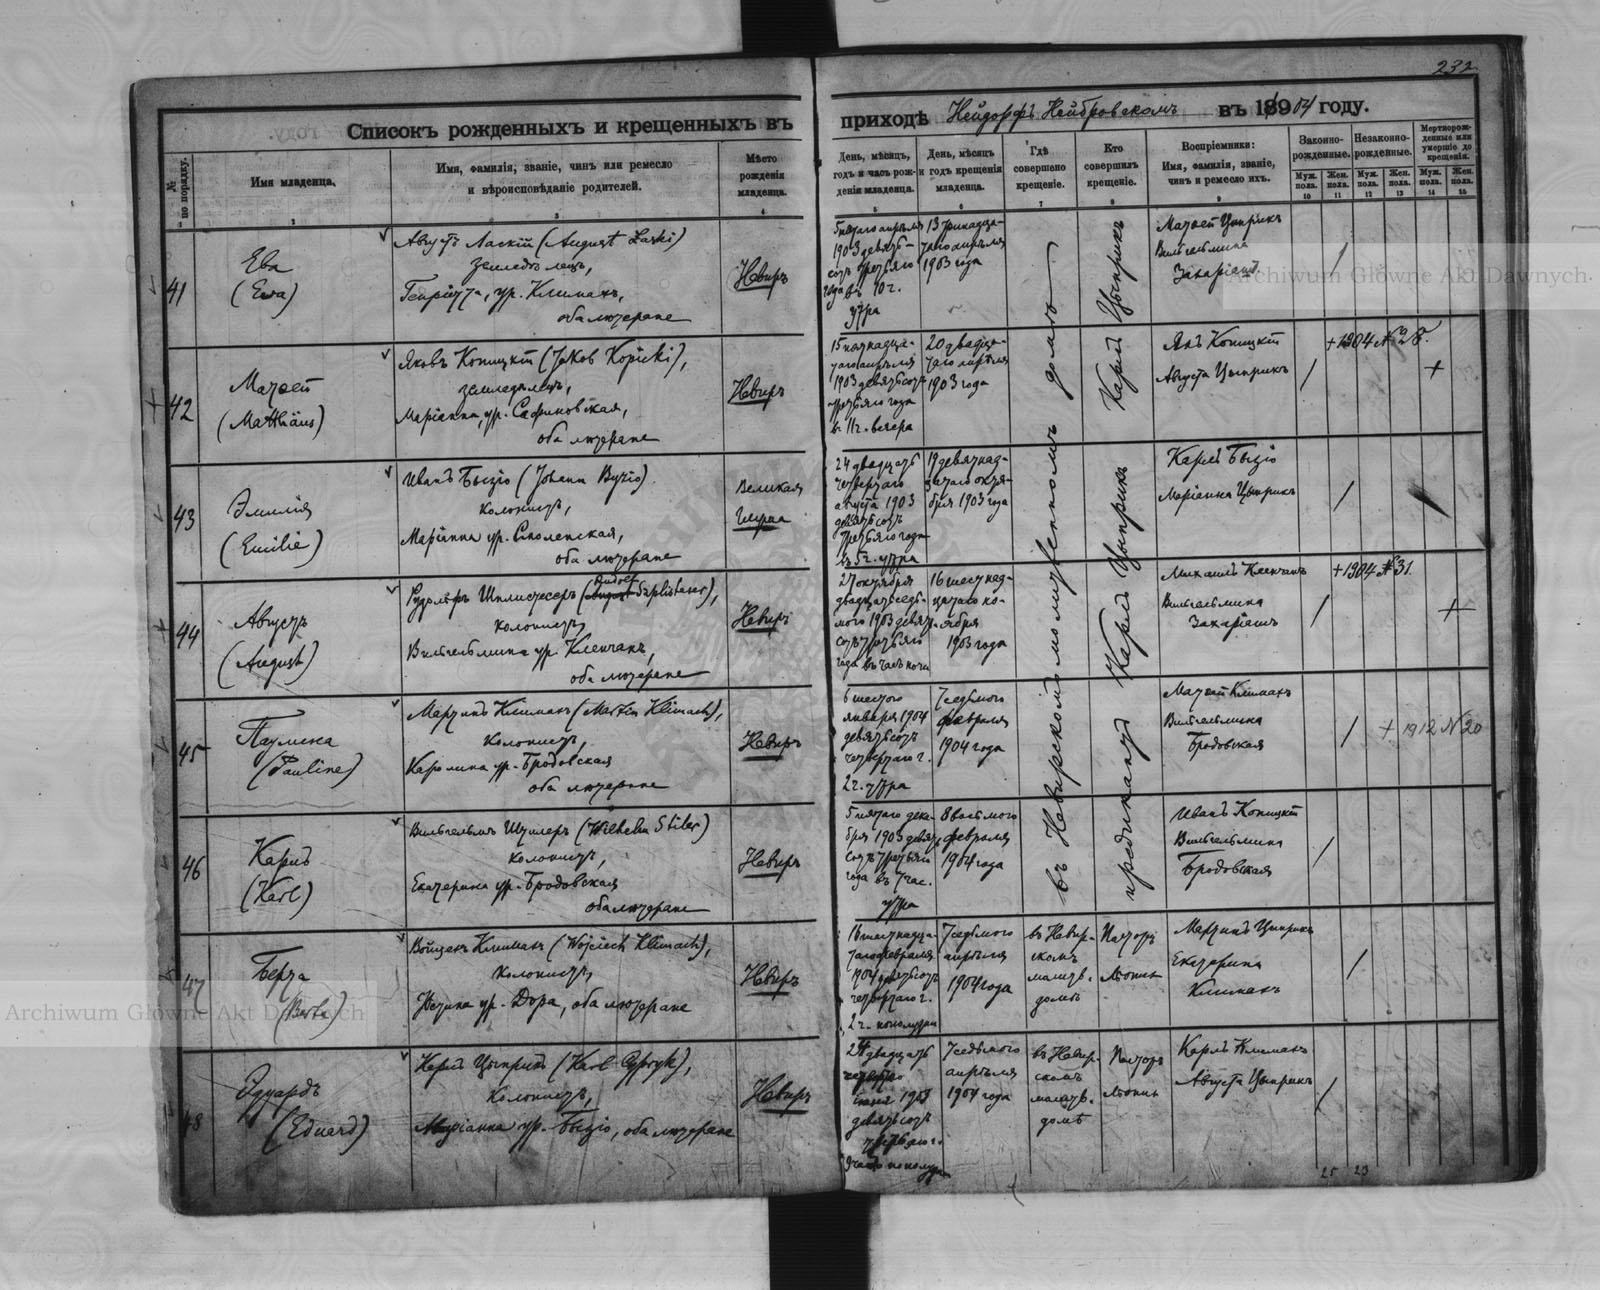 232.
Списокъ рожденныхъ и крещенныхъ въ приходѣ Нейдорфъ Нейбровскомъ въ 1904 году.
№ по порядку.
Имя младенца.
Имя, фамилія, званіе, чинъ или ремесло и вѣроисповѣданіе родителей.
Мѣсто рожденія младенца.
День, мѣсяцъ, годъ и часъ рожденія младенца.
День, мѣсяцъ и годъ крещенія младенца.
Гдѣ совершено крещеніе.
Кто совершилъ крещеніе.
Воспріемники: Имя, фамилія, званіе, чинъ и ремесло ихъ.
Законнорожденные.
Незаконнорожденные.
Мертворожденные или умершіе до крещенія.
Муж. пола.
Жен. пола.
Муж. пола.
Жен. пола.
Муж. пола.
Жен. пола.
1 2 3 4 5 6 7 8 9 10 11 12 13 14 15
41
Ева
(Ewa)
Августъ Ласкій (August Laski)
земледѣлецъ,
ур. Климахъ,
оба лютеране
Невиръ
5 пятаго апрѣля
1903 девять-
сотъ третьяго
года въ 10 ч.
утра
13 тринадца-
таго апрѣля
1903 года
въ Невирскомъ молитвенномъ домѣ
предикантъ Карлъ Цыприкъ
Матвей Цыприкъ
Вильгельмина
42
Матвей
(Matthäus)
Яковъ Копицкій (Jakob Kopicki),
земледѣлецъ,
Маріанна, ур. Сафиновская,
оба лютеране
Невиръ
15 пятнадца-
таго апрѣля
1903 девятьсотъ
третьяго года
въ 11 ч. вечера
20 двадца-
таго апрѣля
1903 года
Янъ Копицкій
Августа Цыприкъ
+1904 № 28.
43
Эмилія
(Emilie)
Иванъ Бызіо (Johann Byzio).
колонистъ,
Маріанна ур. Смоленская,
оба лютеране
Великая
24 двадцать
четвертаго
августа 1903
девятьсотъ
третьяго года
въ 5 ч. утра
19 девятнад-
цатаго октя-
бря 1903 года
Карлъ Бызіо
Маріанна Цыприкъ
44
Августъ
(August)
Рудольфъ
колонистъ,
Вильгельмина ур. Клепчакъ,
оба лютеране
Невиръ
27 октября
двадцать седь-
мого 1903 девять-
сотъ третьяго
года въ часъ ночи
16 шестнад-
цатаго но-
ября
1903 года
Михаилъ Клепчакъ
Вильгельмина
+1904 № 31.
45
Паулина
(Pauline)
Мартинъ Климахъ (Martin Klimach),
колонистъ,
Каролина ур. Бродовская
оба лютеране
Невиръ
6 шестого
января 1904
девятьсотъ
четвертаго г.
2 ч. утра
7 седьмого
февраля
1904 года
Матвей Климахъ
Вильгельмина
Бродовская
+ 1912 № 20
46
Карлъ
(Karl)
Вильгельмъ Штилеръ (Wilhelm Stiler)
колонистъ,
Екатерина ур. Бродовская
оба лютеране
Невиръ
5 пятаго дека-
бря 1903 девять-
сотъ третьяго
года въ 7 час.
утра
8 восьмого
февраля
1904 года
Иванъ Копицкій
Вильгельмина
Бродовская
47
Берта
(Berta)
Войцехъ Климахъ (Wojciech Klimach),
колонистъ,
ур. Дора, оба лютеране
Невиръ
16 шестнадца-
таго февраля
1904 девятьсотъ
четвертаго г.
2 ч. пополудни
7 седьмого
апрѣля
1904 года
въ Невир-
скомъ
молитв.
домѣ
Пасторъ
Мартинъ Цыприкъ
Екатерина
Климахъ
48
Эдуардъ
(Eduard)
Карлъ Цыприкъ (Karl Cypryk),
колонистъ,
Маріанна ур. Бызіо, оба лютеране
Невиръ
24 двадцать
четвертаго
іюня 1903
девятьсотъ
третьяго г.
пополудни
7 седьмого
апрѣля
1904 года
въ Невир-
скомъ
молитв.
домѣ
Пасторъ
Карлъ Климахъ
Августа Цыприкъ
25 23
Archiwum Główne Akt Dawnych
Archiwum Główne Akt Dawnych